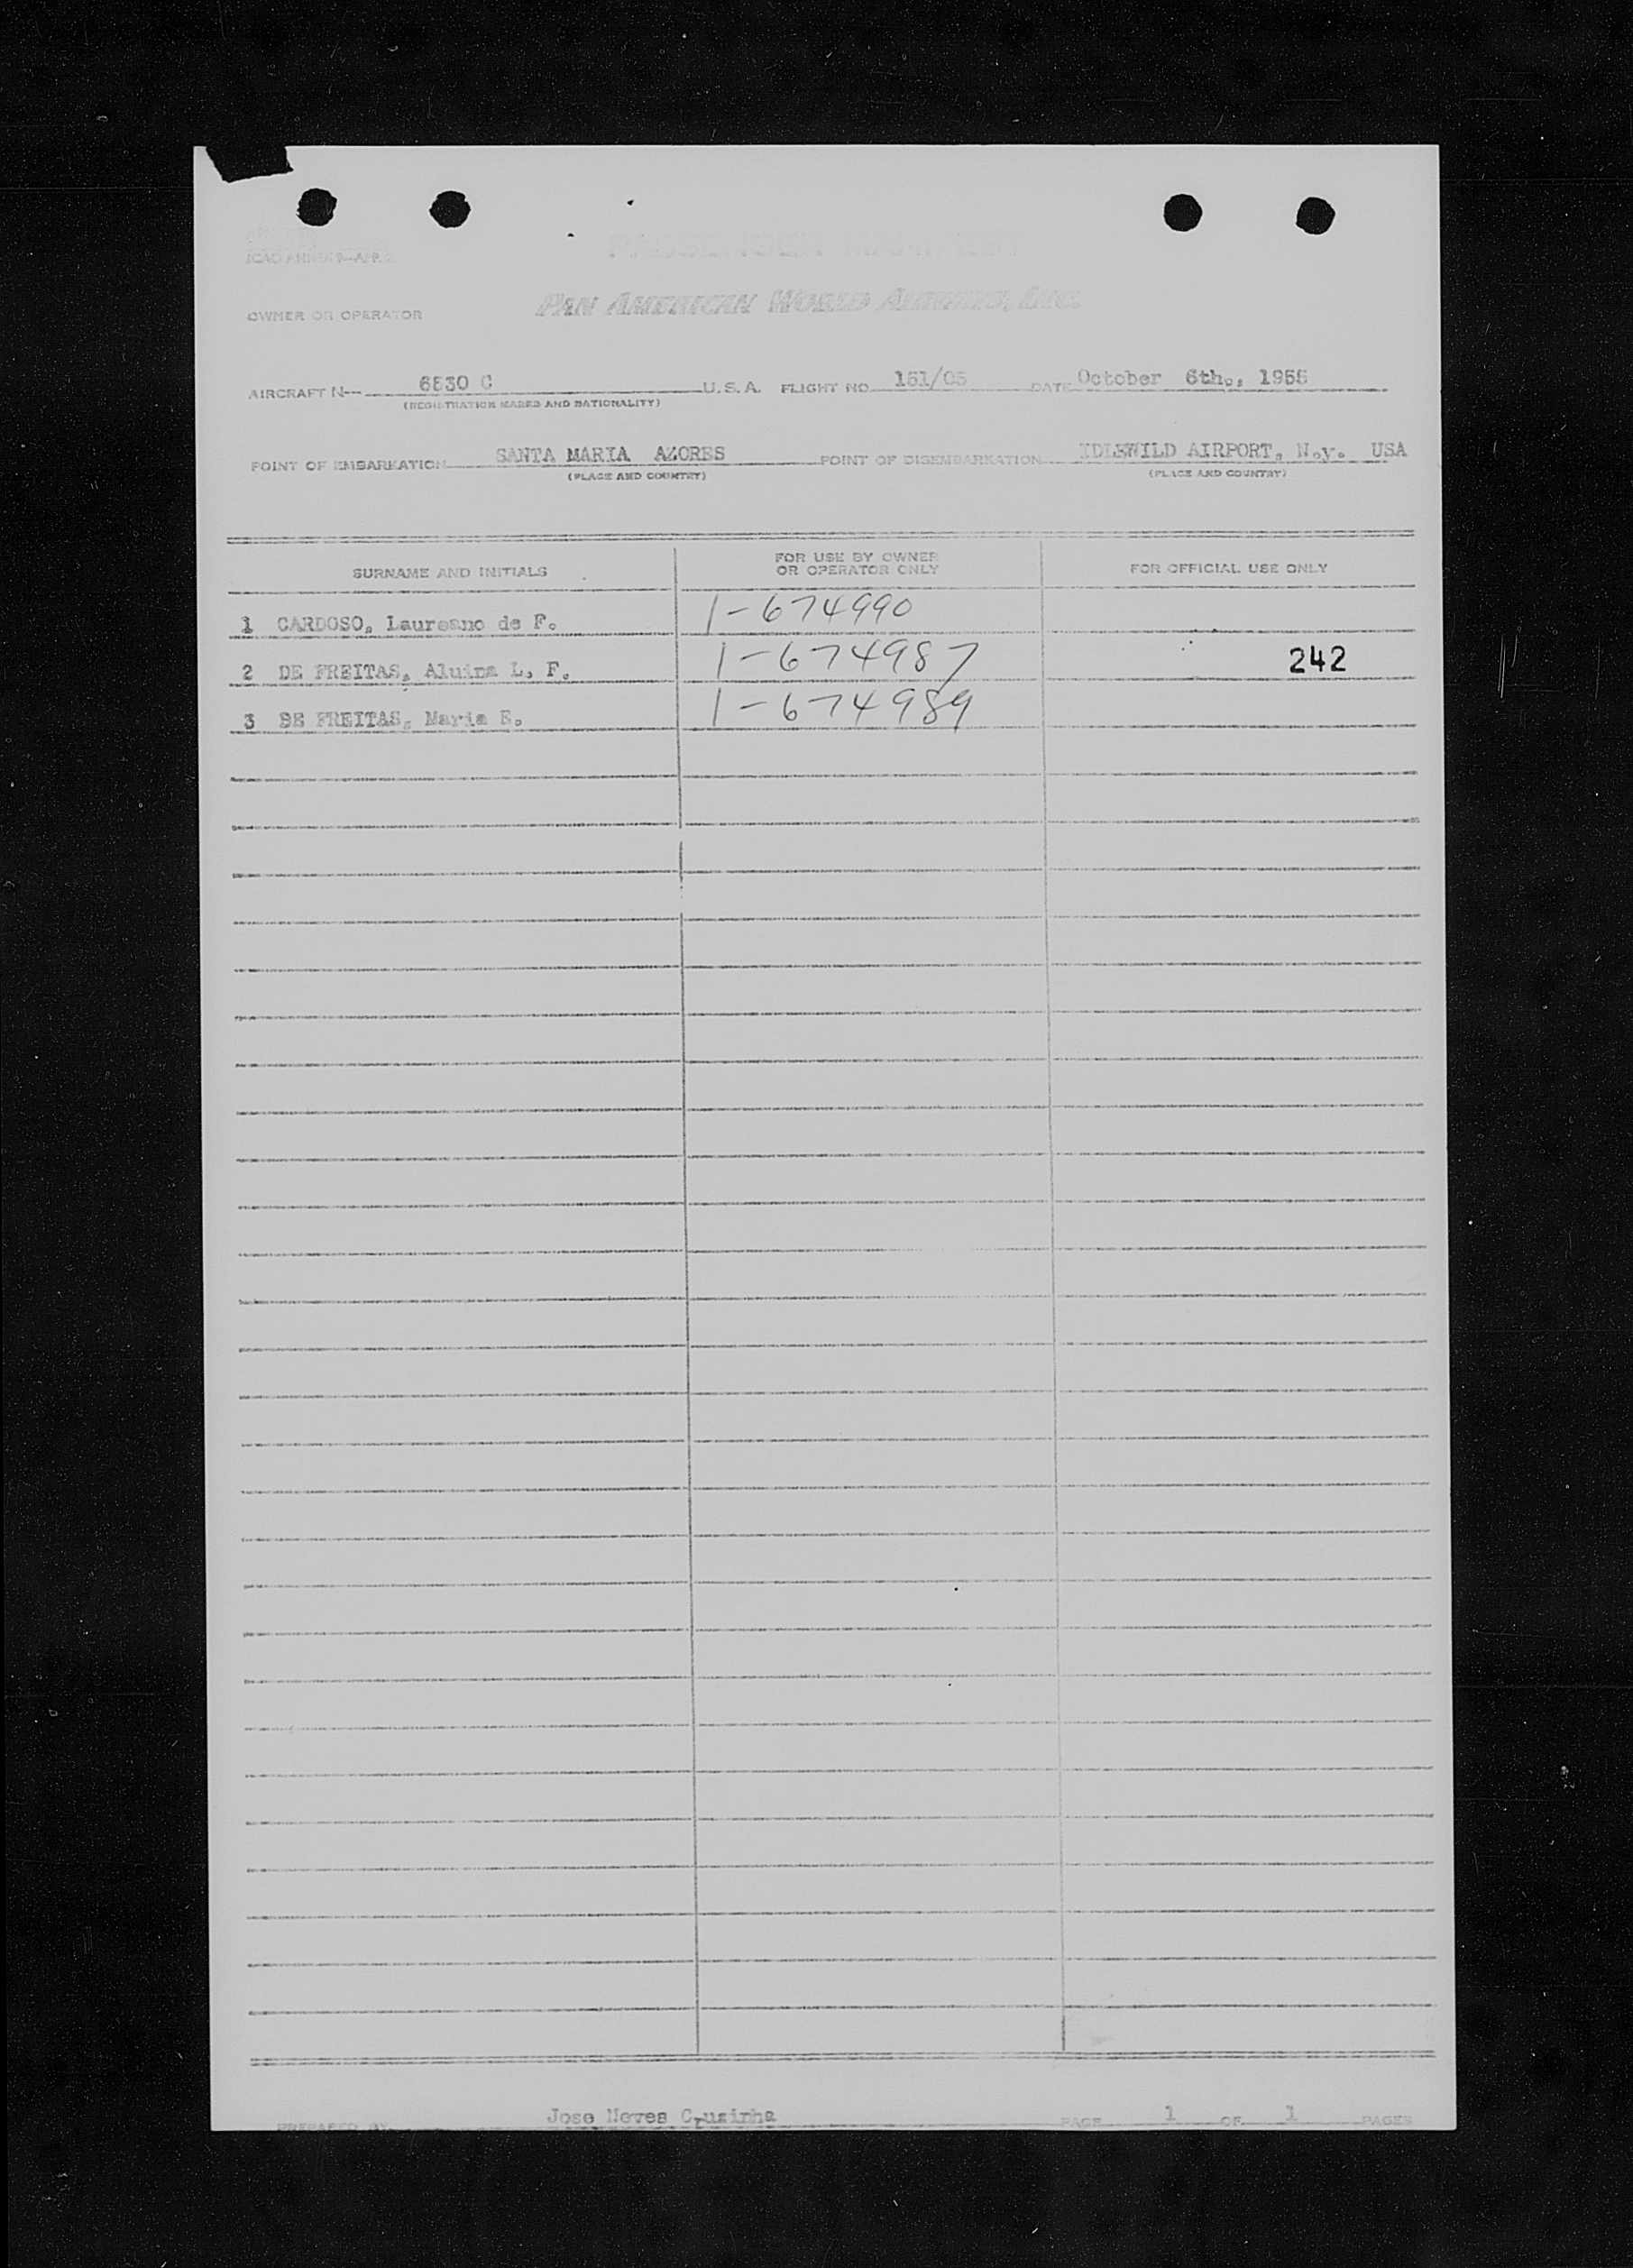 ICAO ANNEX 9—APP.
PASSENGER MANIFEST
OWNER OR OPERATOR PAN AMERICAN WORLD AIRWAYS, INC.
AIRCRAFT N— 6530 C U. S. A. FLIGHT NO. 151/05 DATE October 6th., 1955
(REGISTRATION MARKS AND NATIONALITY)
POINT OF EMBARKATION SANTA MARIA AZORES POINT OF DISEMBARKATION IDLEWILD AIRPORT, N.y. USA
(PLACE AND COUNTRY) (PLACE AND COUNTRY)
SURNAME AND INITIALS FOR USE BY OWNER OR OPERATOR ONLY FOR OFFICIAL USE ONLY
1 CARDOSO, Laureano de F. 1-674990
2 DE FREITAS, Aluina L. F. 1-674987 242
3 DE FREITAS, Maria E. 1-674989
PREPARED BY Jose Neves Crusinha PAGE 1 OF 1 PAGES